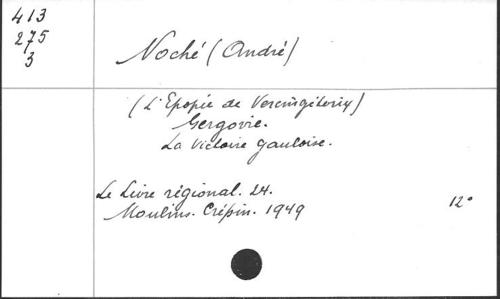 413
275
3
Noché (André)
(L'Epopée de Vercingétorix)
Gergovie.
La Victoire gauloise.
Le Livre régional. 24.
Moulins. Crépin. 1949
12°